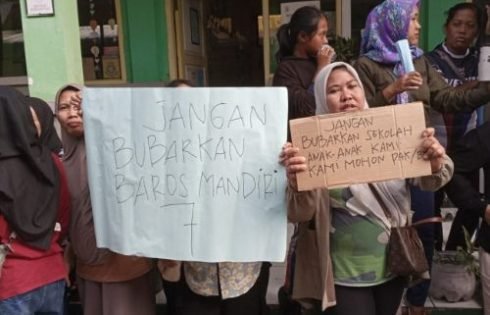 JANGAN
BUBARKAN
BAROS MANDIRI
7
JANGAN
BUBARKAN SEKOLAH
ANAK-ANAK KAMI
KAMI MOHON PAK/